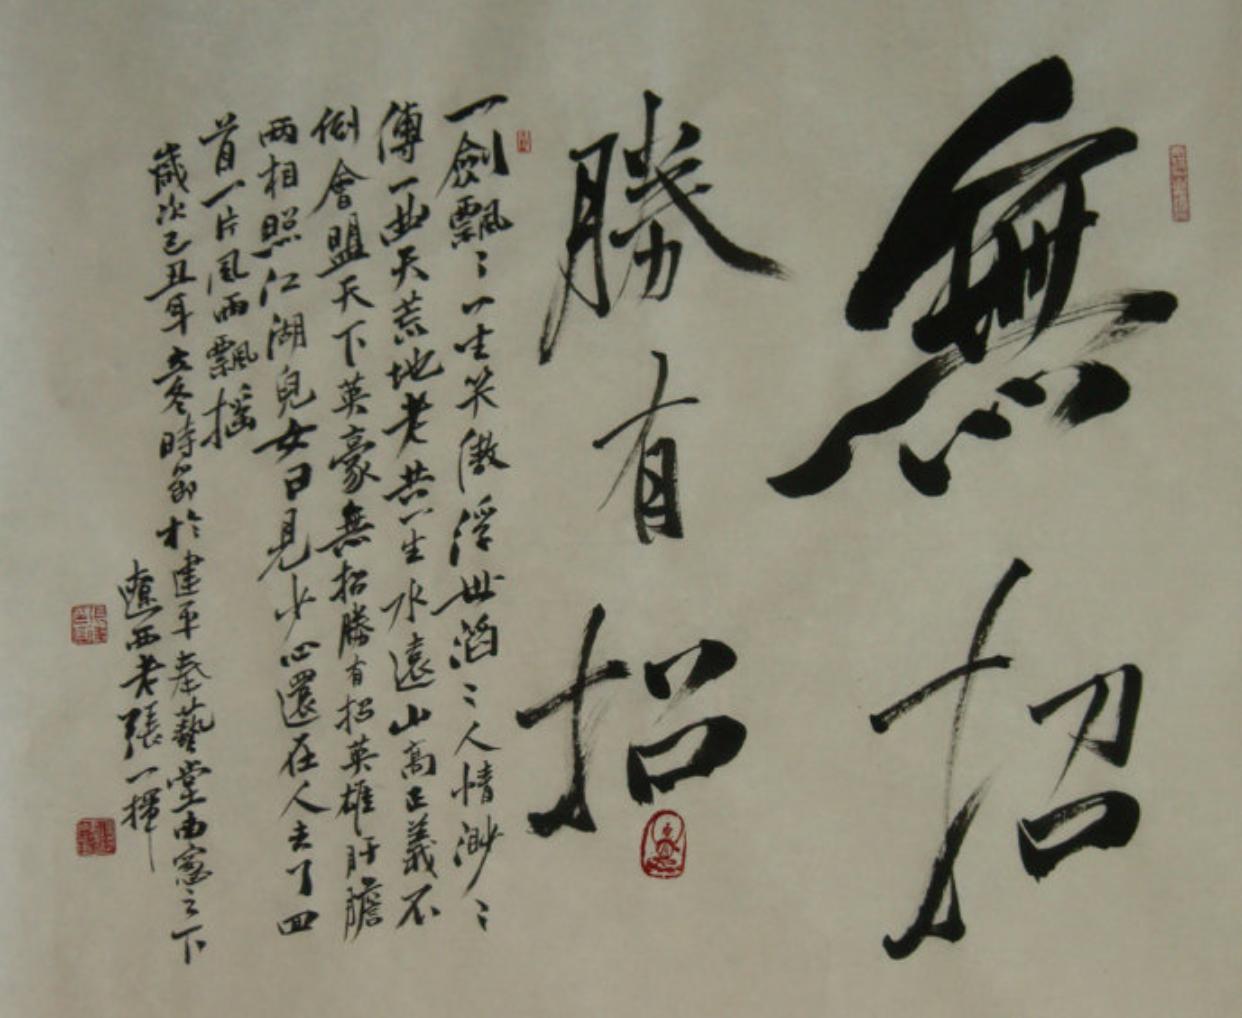 無招
勝有招
一劍飄〻一生笑傲浮世滔〻人情渺〻
傳一曲天荒地老共一生水遠山高正義不
倒會盟天下英豪無招勝有招英雄肝膽
兩相照江湖兒女日見少心還在人去了回
首一片風雨飄搖
歲次己丑年立冬時節於建平奉藝堂南窓之下
遼西老張一揮